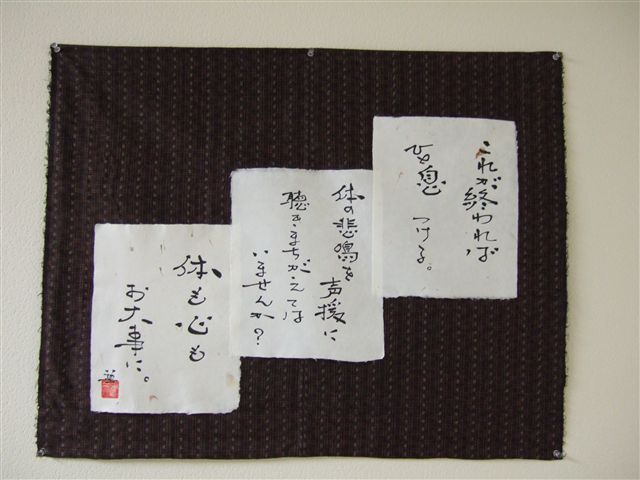 これが終われば
ひと息 つける。
体の悲鳴を声援に
聴きまちがえては
いませんか?
体も心も
お大事に。